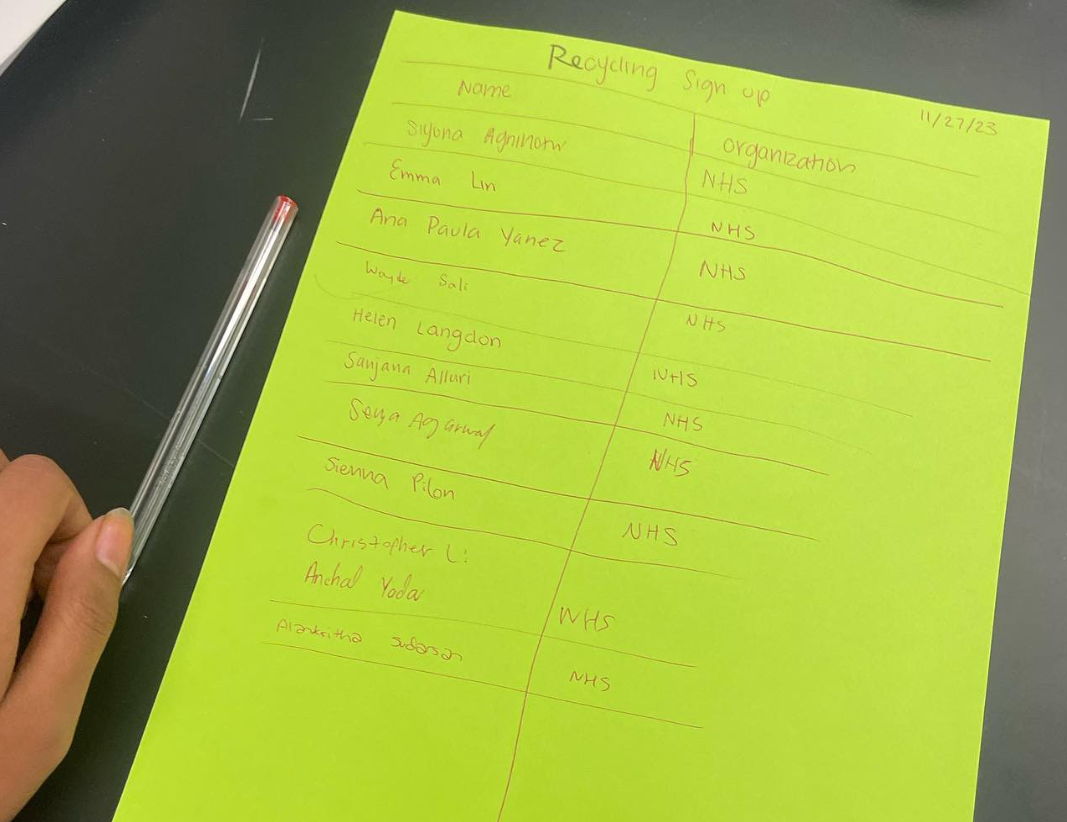 Recycling Sign up
11/27/23
Name Organization
Siyona NHS
Emma Lin NHS
Ana Paula Yanez NHS
Sali NHS
Helen Langdon NHS
Sanjana Alluri NHS
Agarwal NHS
Sienna Pilon NHS
Christopher Li
Anchal NHS
Alankritha Sudarsan NHS